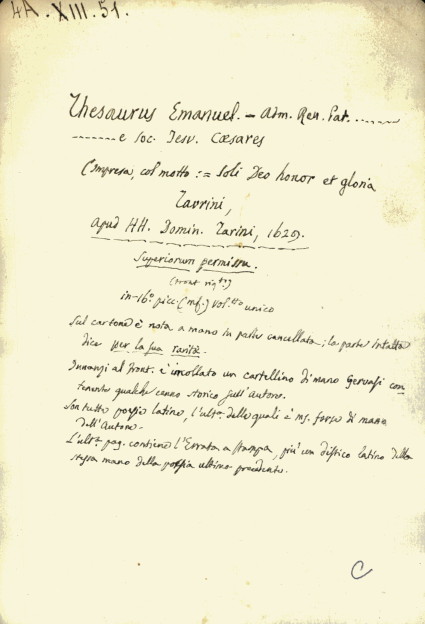 4A. XIII. 51.
Thesaurus Emanuel. — Adm. Rev. Pat. ........
........ e Soc. Iesu. Cæsares
Impresa, col motto := Soli Deo honor et gloria
Taurini,
Apud HH. Domin. Tarini,
Superiorum permissu.
(front. rig.to)
in-16° picc. (mf.) vol.tto unico
Sul cartone è nota a mano in parte cancellata; la parte intatta
dice per la sua rarità.
Innanzi al front. è incollato un cartellino di mano Gervasi con
tenente qualche cenno storico sull'autore.
Son tutte poesie latine, l'ult.a delle quali è ms. forse di mano
dell'Autore.
L'ult.a pag. contiene l'Errata a stampa, più un distico latino della
stessa mano della poesia ultima precedente.
C